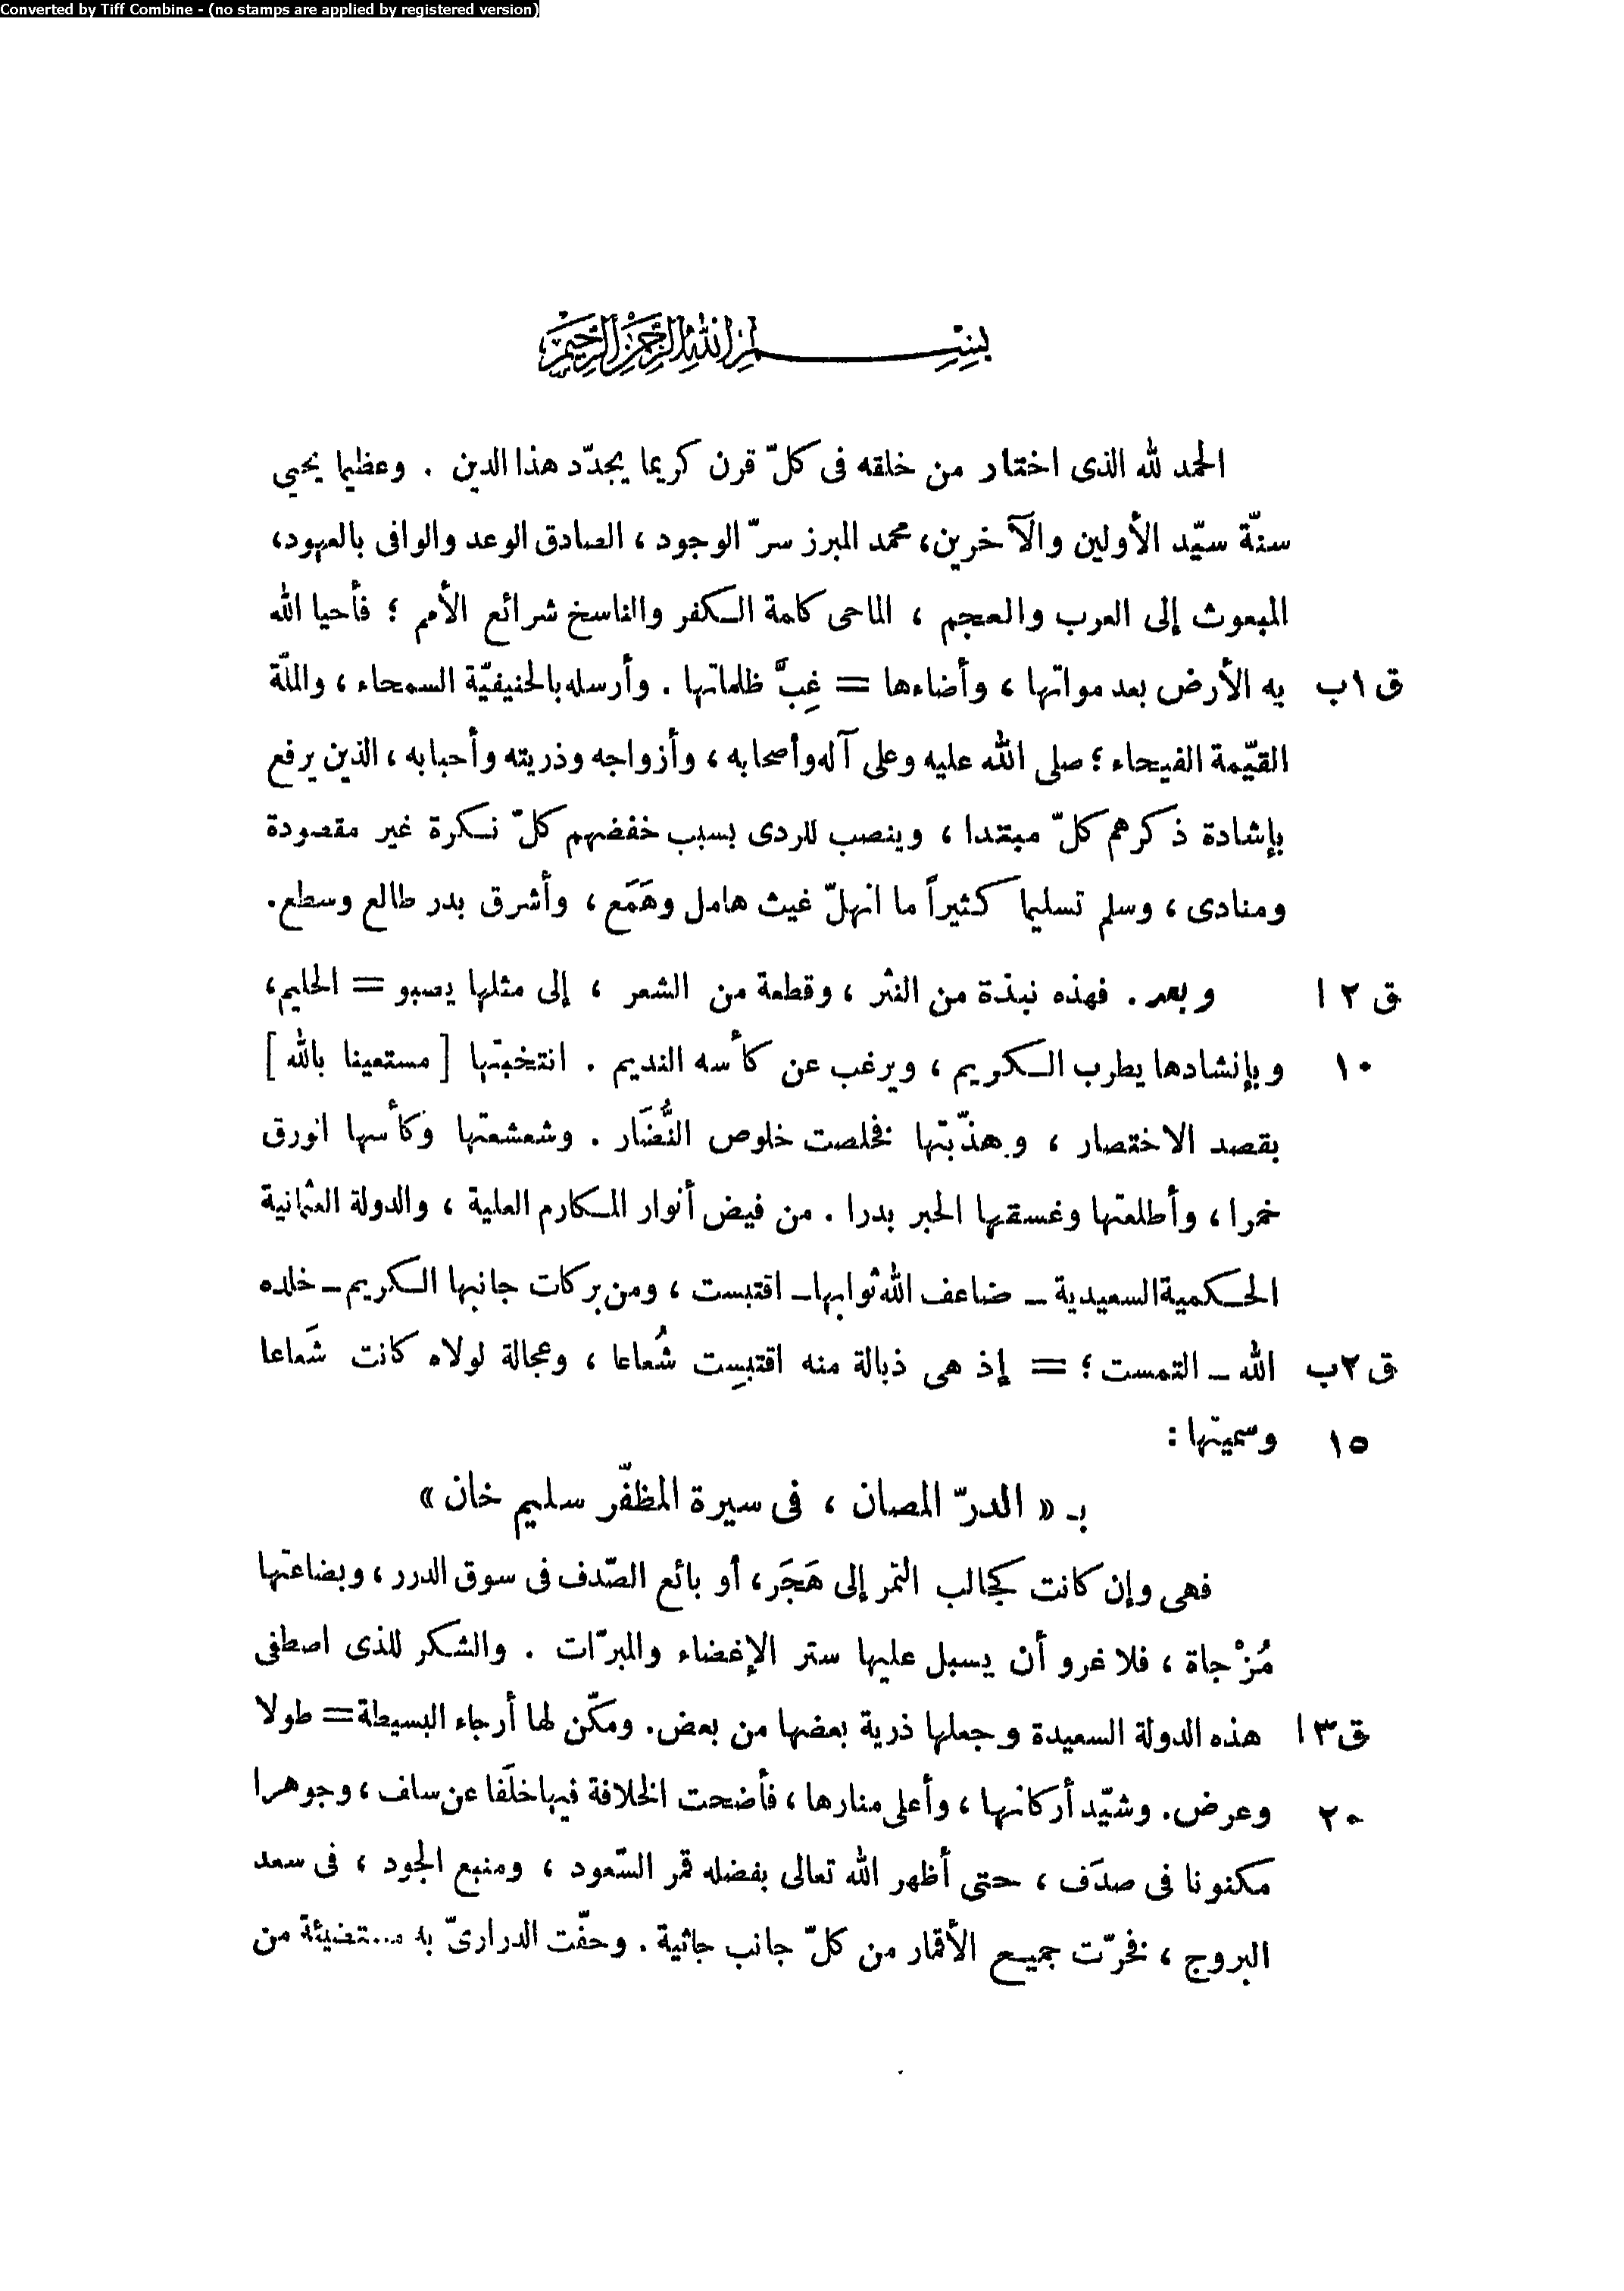 Converted by Tiff Combine - (no stamps are applied by registered version)
بسم الله الرحمن الرحيم
الحمد لله الذى اختار من خلقه فى كلّ قرن كريما يجدّد هذا الدين . وعظيما يحيى
سنّة سيّد الأولين والآخرين، محمد المبرز سرّ الوجود ، الصادق الوعد والوافى بالعهود،
المبعوث إلى العرب والعجم ، الماحى كلمة الكفر والناسخ شرائع الأمم ؛ فأحيا الله
ق ١ب به الأرض بعد مواتها ، وأضاءها = غِبَّ ظلماتها . وأرسله بالحنيفيّة السمحاء ، والملّة
القيّمة الفيحاء ؛ صلى الله عليه وعلى آله وأصحابه ، وأزواجه وذريته وأحبابه ، الذين يرفع
بإشادة ذكرهم كلّ مبتدا ، وينصب للردى بسبب خفضهم كلّ نكرة غير مقصودة
ومنادى ، وسلم تسليما كثيراً ما انهلّ غيث هامل وهَمَع ، وأشرق بدر طالع وسطع.
ق ٢ ا وبعد . فهذه نبذة من النثر ، وقطعة من الشعر ، إلى مثلها يصبو = الحليم،
١٠ وبإنشادها يطرب الكريم ، ويرغب عن كأسه النديم . انتخبتها [ مستعينا بالله ]
بقصد الاختصار ، وهذّبتها فخلصت خلوص النُّضَار . وشعشعتها وكأسها انورق
خمرا ، وأطلعتها وغسقها الحبر بدرا . من فيض أنوار المكارم العلية ، والدولة العثمانية
الحكمية السعيدية – ضاعف الله ثوابها – اقتبست ، ومن بركات جانبها الكريم – خلده
ق ٢ب الله – التمست ؛ = إذ هى ذبالة منه اقتبست شُعاعا ، وعجالة لولاه كانت شَعاعا
١٥ وسميتها :
بـ « الدرّ المصان ، فى سيرة المظفّر سليم خان »
فهى وإن كانت كجالب التمر إلى هَجَر، أو بائع الصّدف فى سوق الدرر ، وبضاعتها
مُزْجاة ، فلا غرو أن يسبل عليها ستر الإغضاء والمبرّات . والشكر للذى اصطفى
ق ٣ ا هذه الدولة السعيدة وجعلها ذرية بعضها من بعض. ومكّن لها أرجاء البسيطة = طولا
٢٠ وعرض. وشيّد أركانها ، وأعلى منارها ، فأضحت الخلافة فيها خلَفا عن ساف ، وجوهرا
مكنونا فى صدَف ، حتى أظهر الله تعالى بفضله قمر السّعود ، ومنبع الجود ، فى سعد
البروج ، فخرّت جميع الأقمار من كلّ جانب جاثية . وحفّت الدرارىّ به من